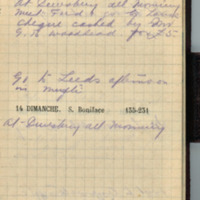 At Dewsbury all morning
Meet Fred & go G. Lowin
Cheque cashed by Mr
G. R Woodhead for £5
Go to Leeds afternoon
in mufti
14 DIMANCHE. S. Boniface 135-231
At Dewsbury all morning